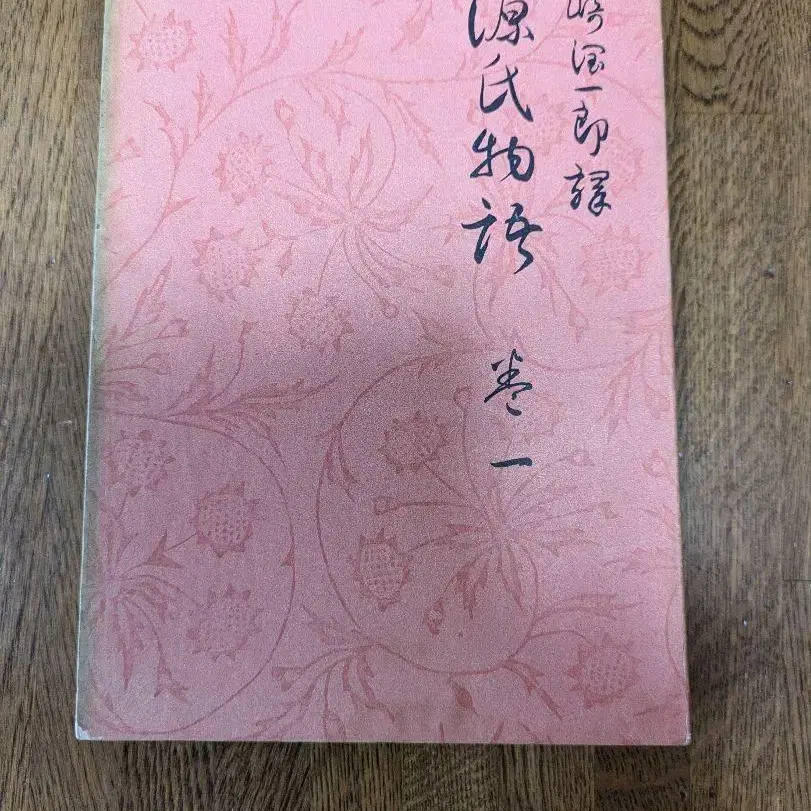 崎潤一郎譯
源氏物語 巻一